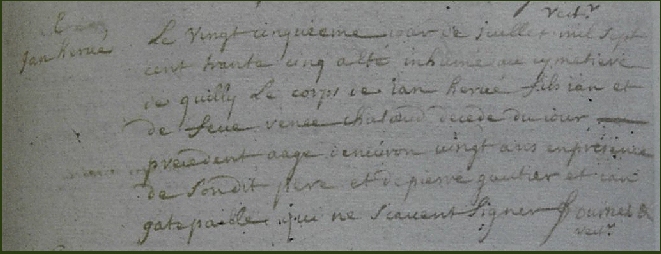 rect.r
E
Jan hervé
Le vingt cinquieme jour de juillet mil sept
cent trante cinq a été inhumé au cymetiere
de quilly Le corps de ian hervé fils ian et
de feue renee decede du iour
precedent aagé denviron vingt ans en presence
de sondit pere et de pierre gautier et ian
gatepaille qui ne scavent signer
rect.r